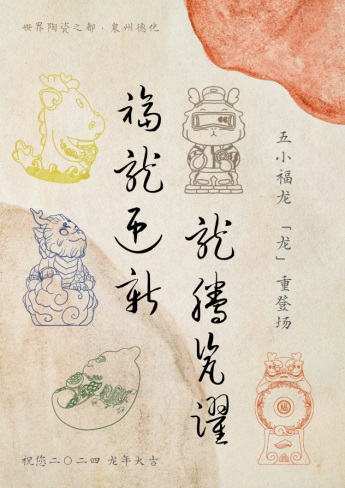 世界陶瓷之都·泉州德化
福龍迎新
龍騰瓷躍
五小福龙「龙」重登场
祝您二〇二四 龙年大吉